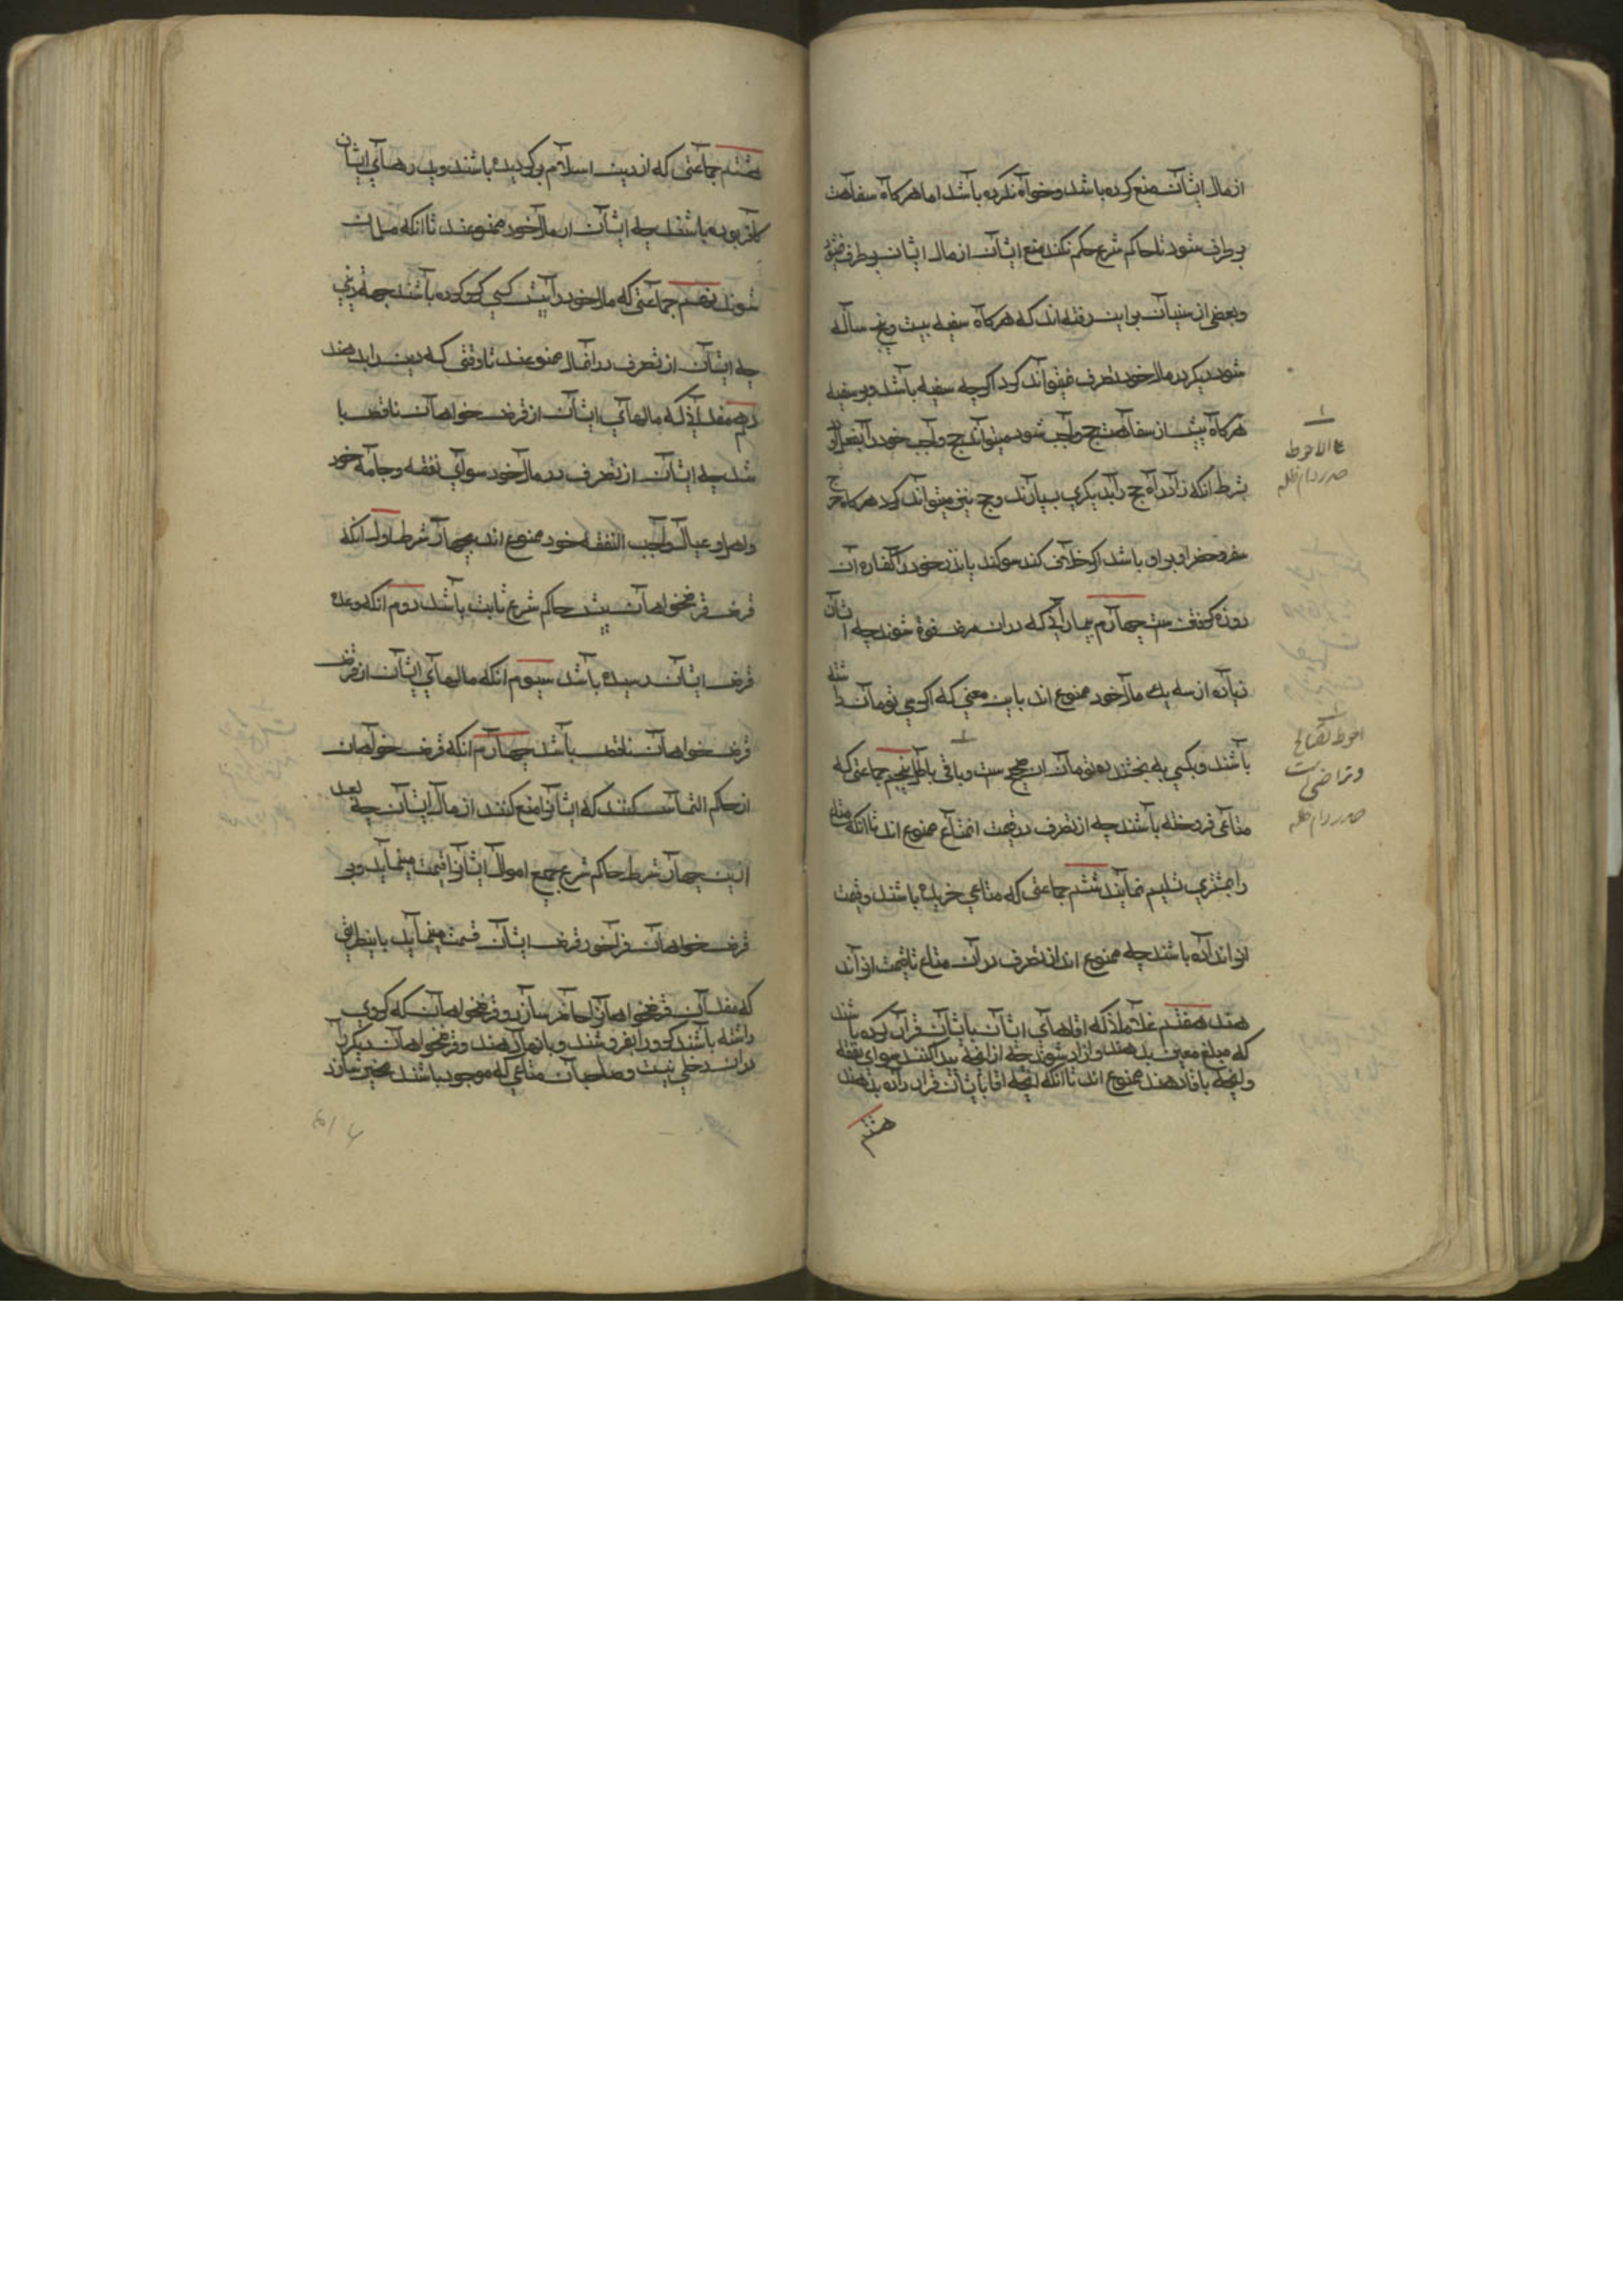 از مال ایشان منع کرده باشد و خواه نکرده باشد اما هرکاه سفاهت
برطرف شود تا حاکم شرع حکم نکند منع ایشان از مال ایشان برطرف نمیشود
و بعضی از سنیان براین رفته اند که هرکاه سفیه بیست و پنج ساله
شود دیکر در مال خود تصرف میتواند کرد اکرچه سفیه باشد و بر سفیه
هرکاه پیش از سفاهت حج واجب شود میتواند حج واجب خود را بفعل آورد
بشرط انکه زاد راه حج را بدیکری بسپارند و حج نیز میتواند کرد هرکاه خرج
سفر و حضر او برابر باشد اکر خلاف کند سوکند یا نذر خود را کفاره آن
روزه کرفتن ست چهارم بیماران که در ان مرض فوت شوند چه ایشان
زیاده از سه یک مال خود ممنوع اند باین معنی که اکر سی تومان داشته
باشند و بکسی به بخشند ده تومان ان صحیح ست و باقی باطل پنجم جماعتی که
متاعی فروخته باشند چه از تصرف در قیمت انمتاع ممنوع اند تا انکه متاع
را بمشتری تسلیم نمایند ششم جماعتی که متاعی خریده باشند و قیمت
انرا نداده باشند چه ممنوع اند از تصرف در آن متاع تا قیمت انرا ند
هند هفتم غلامان که اقاهای ایشان با ایشان قرار کرده باشند
که مبلغ معین بدهند و ازاد شوند چه از انچه پیدا کنند سوای نفقه
و انچه باقا دهند ممنوع اند تا انکه انچه اقا با ایشان قرار داده بدهند
هشتم
علی الاحوط
صدر دام ظله
احوط تصالح
و تراضی ست
صدر دام ظله
هشتم جماعتی که از دین اسلام برکردیده باشند و پدرهای ایشان
کافر بوده باشند چه ایشان از مال خود ممنوعند تا انکه مسلمان
شوند نهم جماعتی که مال خود را پیش کسی کرو کرده باشند جهة دینی
چه ایشان از تصرف در انمال ممنوعند تا وقتی که دین را بدهند
دهم مفلسان که مالهای ایشان از قرض خواهان ناقص با
شد چه ایشان از تصرف در مال خود سوای نفقه و جامه خود
و اهل و عیال واجب النفقه خود ممنوع اند بچهار شرط اول انکه
قرض قرضخواهان پیش حاکم شرع ثابت باشد دوم انکه وعده
قرض ایشان رسیده باشد سیوم انکه مالهای ایشان از قرض
قرض خواهان ناقص باشد چهارم انکه قرض خواهان
از حاکم التماس کنند که ایشانرا منع کنند از مال ایشان چه بعد
از این چهار شرط حاکم شرع جمیع اموال ایشانرا قیمت مینماید و بر
قرض خواهان فراخور قرض ایشان قسمت مینماید باینطریق
که مفلسان قرضخواهانرا حاضر سازد و قرضخواهان که کروی
داشته باشند کرو را بفروشند و بانها دهند و قرضخواهان دیکر را
در ان دخلی نیست و صاحبان متاعی که موجود باشند مخیر سازد